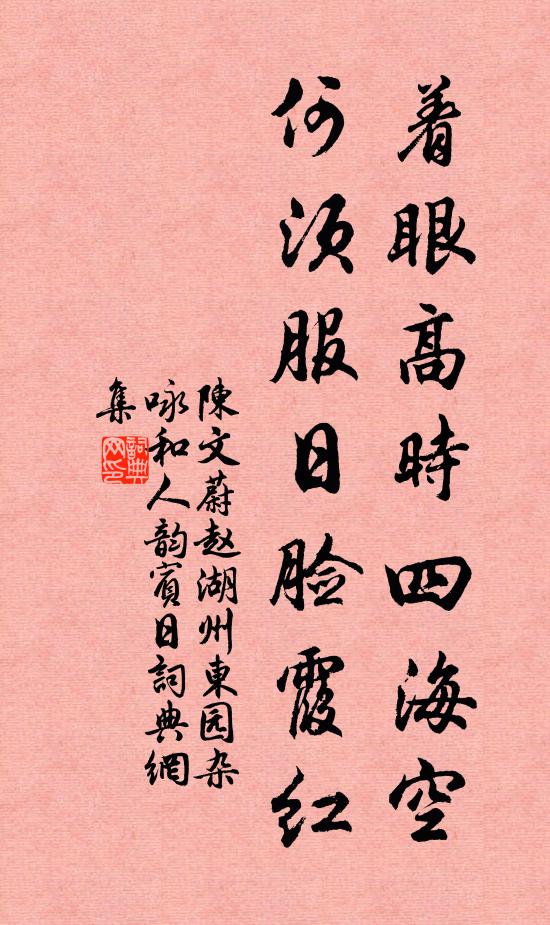 着眼高時四海空
何須服日臉霞红
陳文蔚赵湖州東园杂
咏和人韵賓日詞典網
集
詞典网印